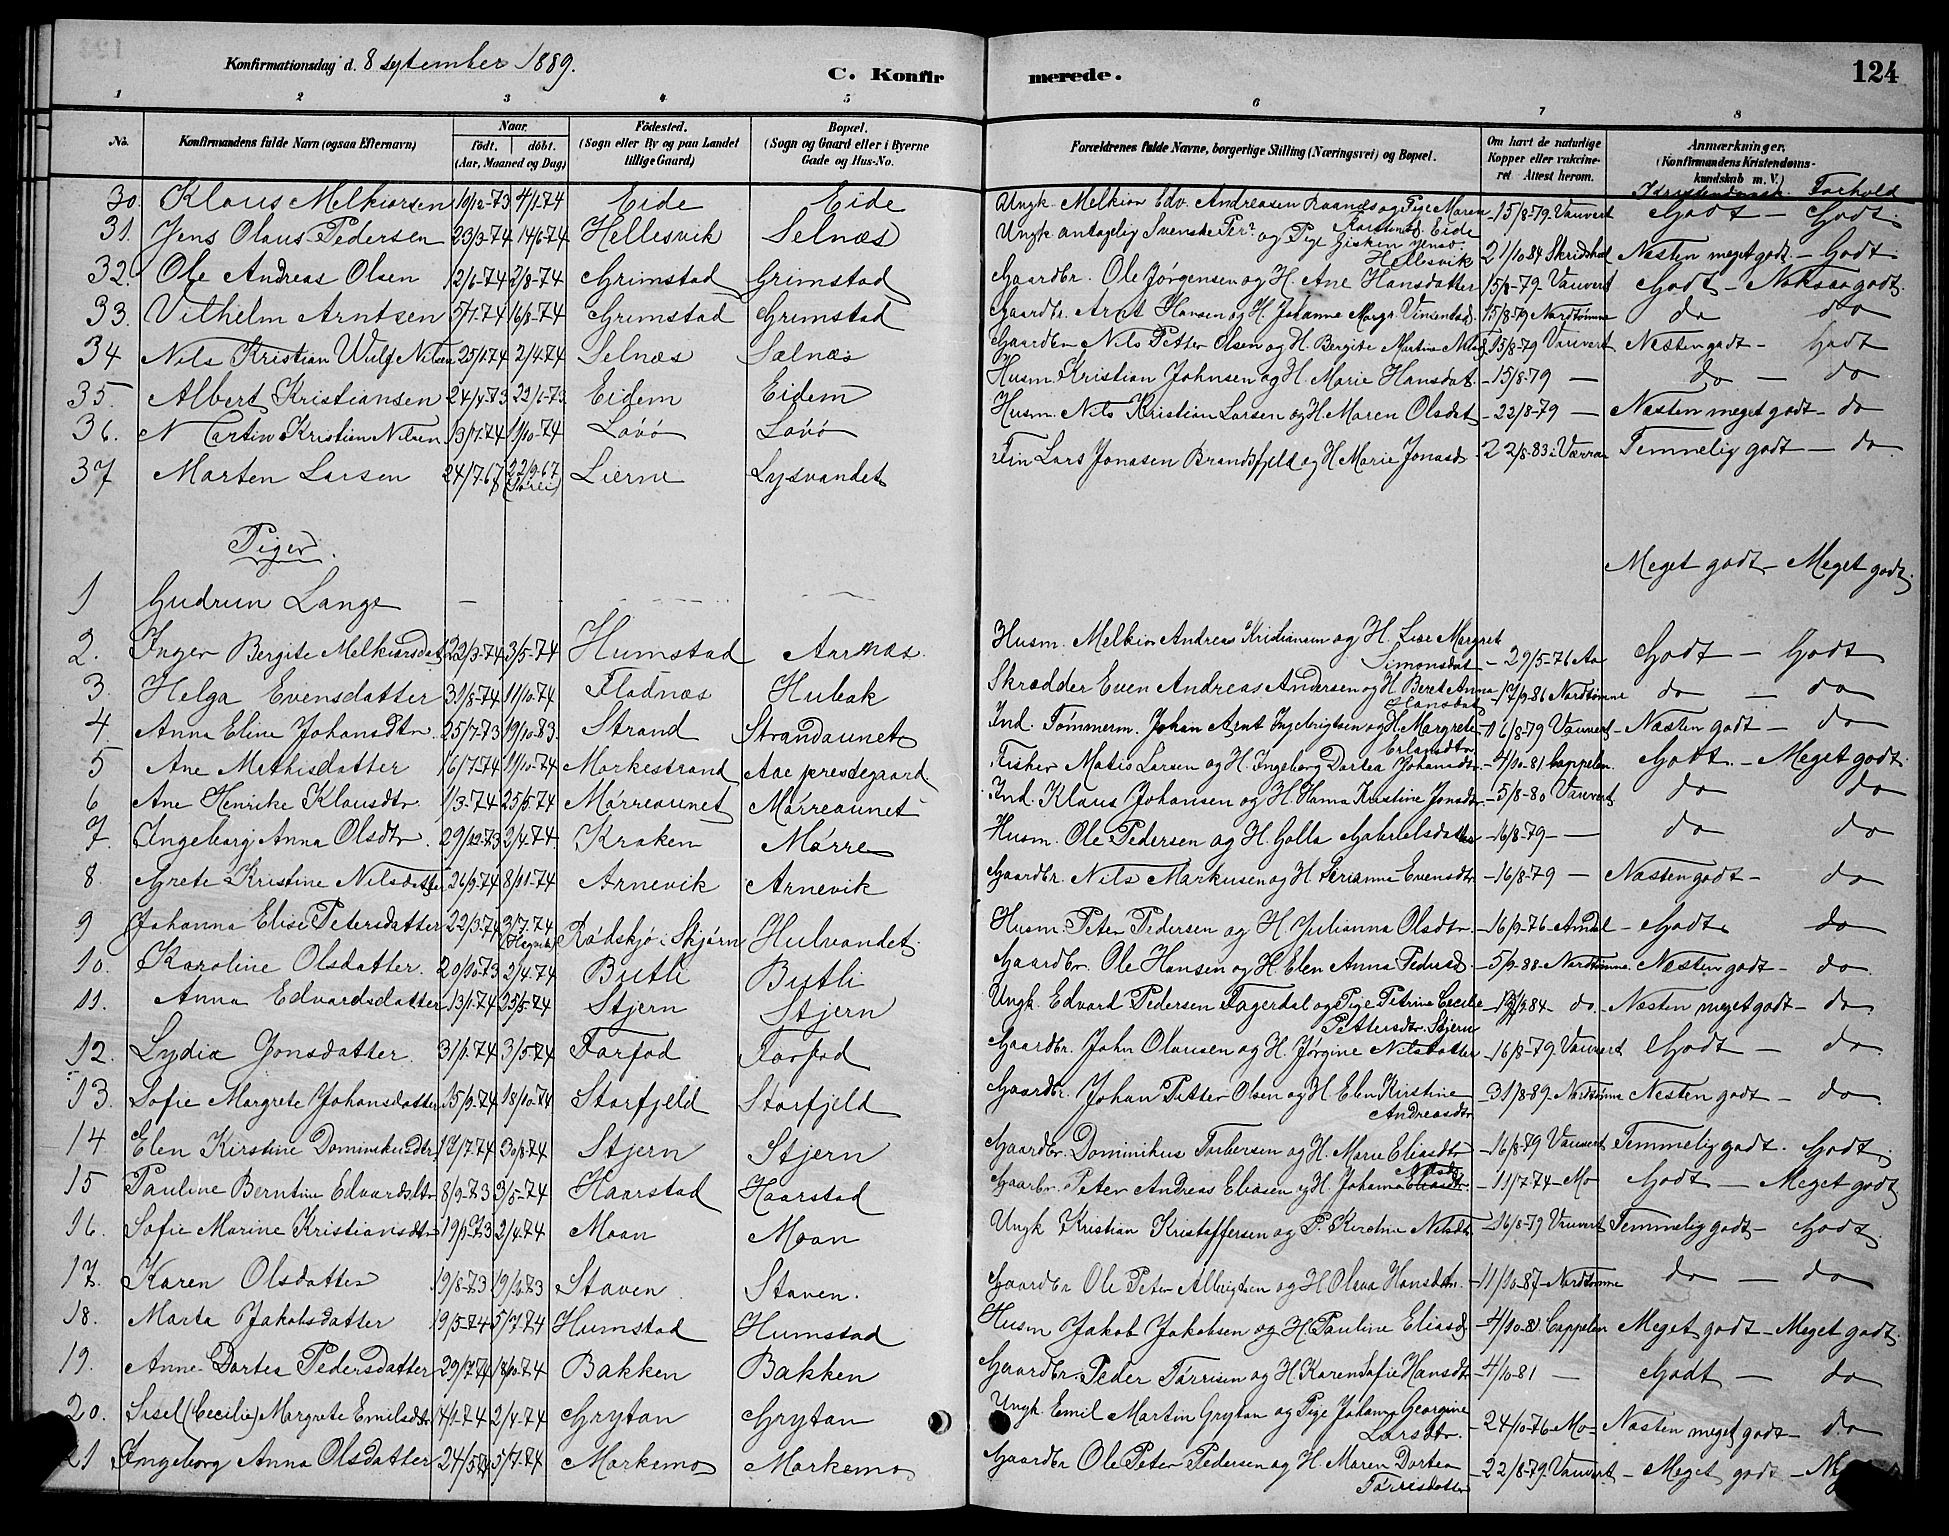 Konfirmationsdag d. 8 september 1889.
C. Konfir
merede.
124
1 2 3 4 5 6 7 8
No.
Konfirmandens fulde Navn (ogsaa Efternavn)
Naar
födt. döbt.
(Aar, Maaned og Dag)
Födested.
(Sogn eller By og paa Landet
tillige Gaard)
Bopæl.
(Sogn og Gaard eller i Byerne
Gade og Hus-No.
Forældrenes fulde Navne, borgerlige Stilling (Næringsvei) og Bopæl.
Om havt de naturlige
Kopper eller vakcine-
ret Attest herom.
Anmærkninger.
(Konfirmandens Kristendoms-
kundskab m. V.)
Kristendomsk. Forhold
30. Klaus Melkiorsen 10/12-73 4/1-74 Eide Eide Ungk. Melkior Edv. Andreasen Raanes og Pige Maren -15/8-79. Vauvert Godt - Godt.
Eide
31. Jens Olaus Pedersen 23/3-74 14/6-74 Hellesvik Selnæs Ungk. antagelig Svenske Per? og Pige Gisken Jensd. 21/10 84 Skridshol Næsten meget godt. - Godt.
Hellesvik
32. Ole Andreas Olsen 12/6-74 2/8-74 Grimstad Grimstad Gaardbr. Ole Jørgensen og H. Ane Hansdatter 15/8-79. Vauvert Godt - Noksaa godt.
33. Vilhelm Arntsen 5/7-74 16/8-74 Grimstad Grimstad Gaardbr. Arnt Hansen og H. Johanna Margr. Vinsentsd. 15/8-79 Nordtømme do do
34 Nils Kristian Wulf Nilsen 25/1-74 2/4-74 Selnæs Sælnæs Gaardbr Nils Petter Olsen og H. Bergite Martine 15/8-79 Vauvert Næsten godt - Godt
35. Albert Kristiansen 24/4-73 22/6-73 Eidem Eidem Husm. Kristian Johnsen og H. Marie Hansdat. -15/8-79 — do — do
36. Martin Kristian Nilsen 13/7-74 11/10-74 Lovö Lovö Husm. Nils Kristian Larsen og H. Maren Olsdat. -22/8-79 — Næsten meget godt - do
37 Marten Larsen 24/7-67 22/9-67 Lierne Lysvandet Fin Lars Jonasen Brandsfjeld og H Marie Jonasd. 22/8-83 i Værran Temmelig godt — do
Piger.
1 Gudrun Lange — Meget godt - Meget godt.
2. Inger Bergite Melkiorsdat 22/3-74 3/5-74 Humstad Aarnæs. Husm. Melkior Andreas Kristiansen og H. Lise Margret
Simonsdat - 29/5-76 Aa Godt — Godt
3. Helga Evensdatter 31/8-74 11/10-74 Fladnæs Hubak Skrædder Even Andreas Andersen og H. Beret Anna -17/9-86 Nordtømme do — do
Hansdat
4 Anna Eline Johansdtr. 25/7-73 19/10-83. Strand Strandaunet Ind. Tømmerm. Johan Arnt Ingebrigtsen og H. Margrete -16/8-79 Vauvert - Næsten godt — do
Erlandsdtr
5 Ane Mathisdatter 16/7-74 11/10-74 Markestrand Aae prestegaard. Fisker Matis Larsen og H. Ingeborg Dortea Johansdtr. -4/10-81 Cappelen. Godt. - Meget godt.
6 Ane Henrike Klausdtr. 1/3-74 25/5-74 Mørreaunet Mørreaunet Ind. Klaus Johansen og H. Hanna Kristine Jonsdtr. -5/8-80 Vauvert do do
7 Ingeborg Anna Olsdtr. 29/12-73 2/4-74. Kraken Mørre Husm. Ole Pedersen og H. Golla Gabrielsdatter -16/8-79 — do do
8. Grete Kristine Nilsdatter 26/9-74 8/11-74 Arnevik Arnevik Gaardbr. Nils Markusen og H. Serianna Evensdtr -16/8-79 — Næsten godt - do
9 Johanna Elise Petersdatter 22/3-74 3/7-74 Rødskjø i Skjørn Hulvandet. Husm. Peter Pedersen og H. Julianna Olsdtr. -16/9-76 - Arndal - Godt do
10. Karoline Olsdatter. 20/10-73 2/4-74 Butli Butli Gaardbr. Ole Hansen og H. Elen Anna Pedersd. -5/9-88 - Nordtømme. Næsten godt - do.
11. Anna Edvardsdatter 13/1-74 25/5-74 Stjern Stjern Ungk. Edvard Pedersen Fagerdal og Pige Petrine Cecilie do. - Næsten meget godt - do
Pettersdtr. Stjern
12. Lydia Jonsdatter. 31/1-74 3/5-74 Farfod Farfod Gaardbr. John Olausen og H. Jørgine Nilsdatter -16/8-79 Vauvert Godt — do
13. Sofie Margrete Johansdatter 15/9-74 18/10-74 Storfjeld Storfjeld Gaardbr. Johan Petter Olsen og H. Elen Kirstine 31/8-89. Nordtømme Næsten godt — do.
Andreasdtr
14 Elen Kirstine Dominikusdtr 17/7-74 30/8-74 Stjern Stjern Gaardbr. Dominikus Torbersen og H. Marie Eliasdtr -16/8-79 Vauvert Temmelig godt. Godt
15 Pauline Berntine Edvardsdtr 8/9-73 3/5-74 Haarstad Haarstad Gaarbr. Peter Andreas Eliasen og H. Johanna -11/7-74 - Mo Godt — Meget godt
16. Sofie Marine Kristiansdtr 2/4-74 Moan Moan Ungk Kristian Kristoffersen og P. Karoline Nilsdtr -16/8-79 Vauvert Temmelig godt - Godt
17. Karen Olsdatter 19/8-73 19/10-73 Staven. Staven. Gaardbr Ole Peter Albrigtsen og H Olava Hansdtr. -11/10-87 - Nordtømme do — do
18. Marta Jakobsdatter 19/5-74 5/7-74 Humstad Humstad Husm Jakob Jakobsen og H. Pauline Eliasd. -4/10-81 Cappelen Meget godt - Meget godt.
19. Anne Dortea Pedersdatter 29/7-74 18/10-74 Bakken Bakken Gaardbr. Peder Tørrisen og H Karen Sofie Hansdt -4/10-81 — Godt — do
20. Sisel (Cecilie) Margrete Emilsdtr 14/1-74 2/4-74 Grytan Grytan Ungk Emil Martin Grytan og Pige Johanna Georgine
Larsdtr. - 24/10-76 - Mo - Næsten meget godt - do
21 Ingeborg Anna Olsdatter 24/5-74 5/7-74 Markemo Markemo Gaardbr Ole Peter Pedersen og H. Maren Dortea
Tørrisdatter 22/8-79. Vauvert - Meget godt -